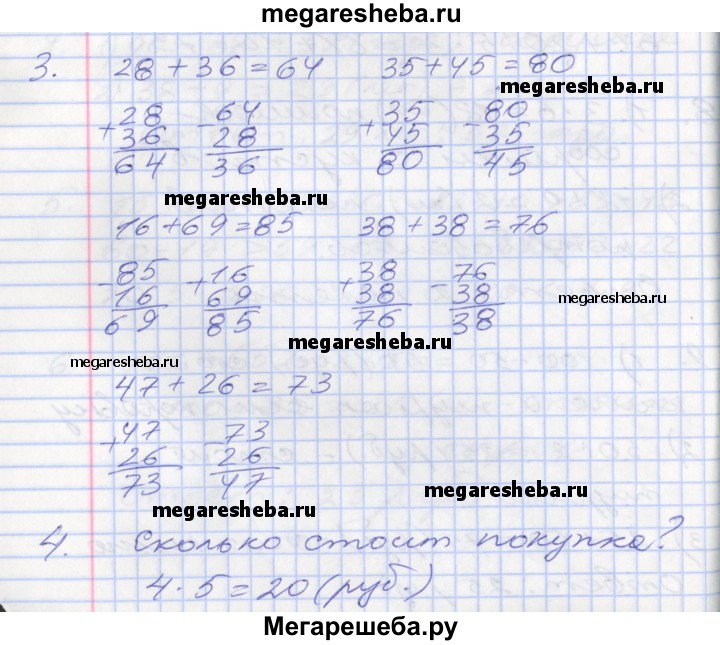 megaresheba.ru
3. 28 + 36 = 64 35 + 45 = 80
megaresheba.ru
+ 28 - 64 + 35 - 80
36 28 45 35
64 36 80 45
megaresheba.ru
16 + 69 = 85 38 + 38 = 76
- 85 + 16 + 38 - 76
16 69 38 38
69 85 76 38
megaresheba.ru
megaresheba.ru
megaresheba.ru
47 + 26 = 73
+ 47 - 73
26 26
73 47
megaresheba.ru
megaresheba.ru
4. Сколько стоит покупка?
4 · 5 = 20 (руб.)
Мегарешеба.ру